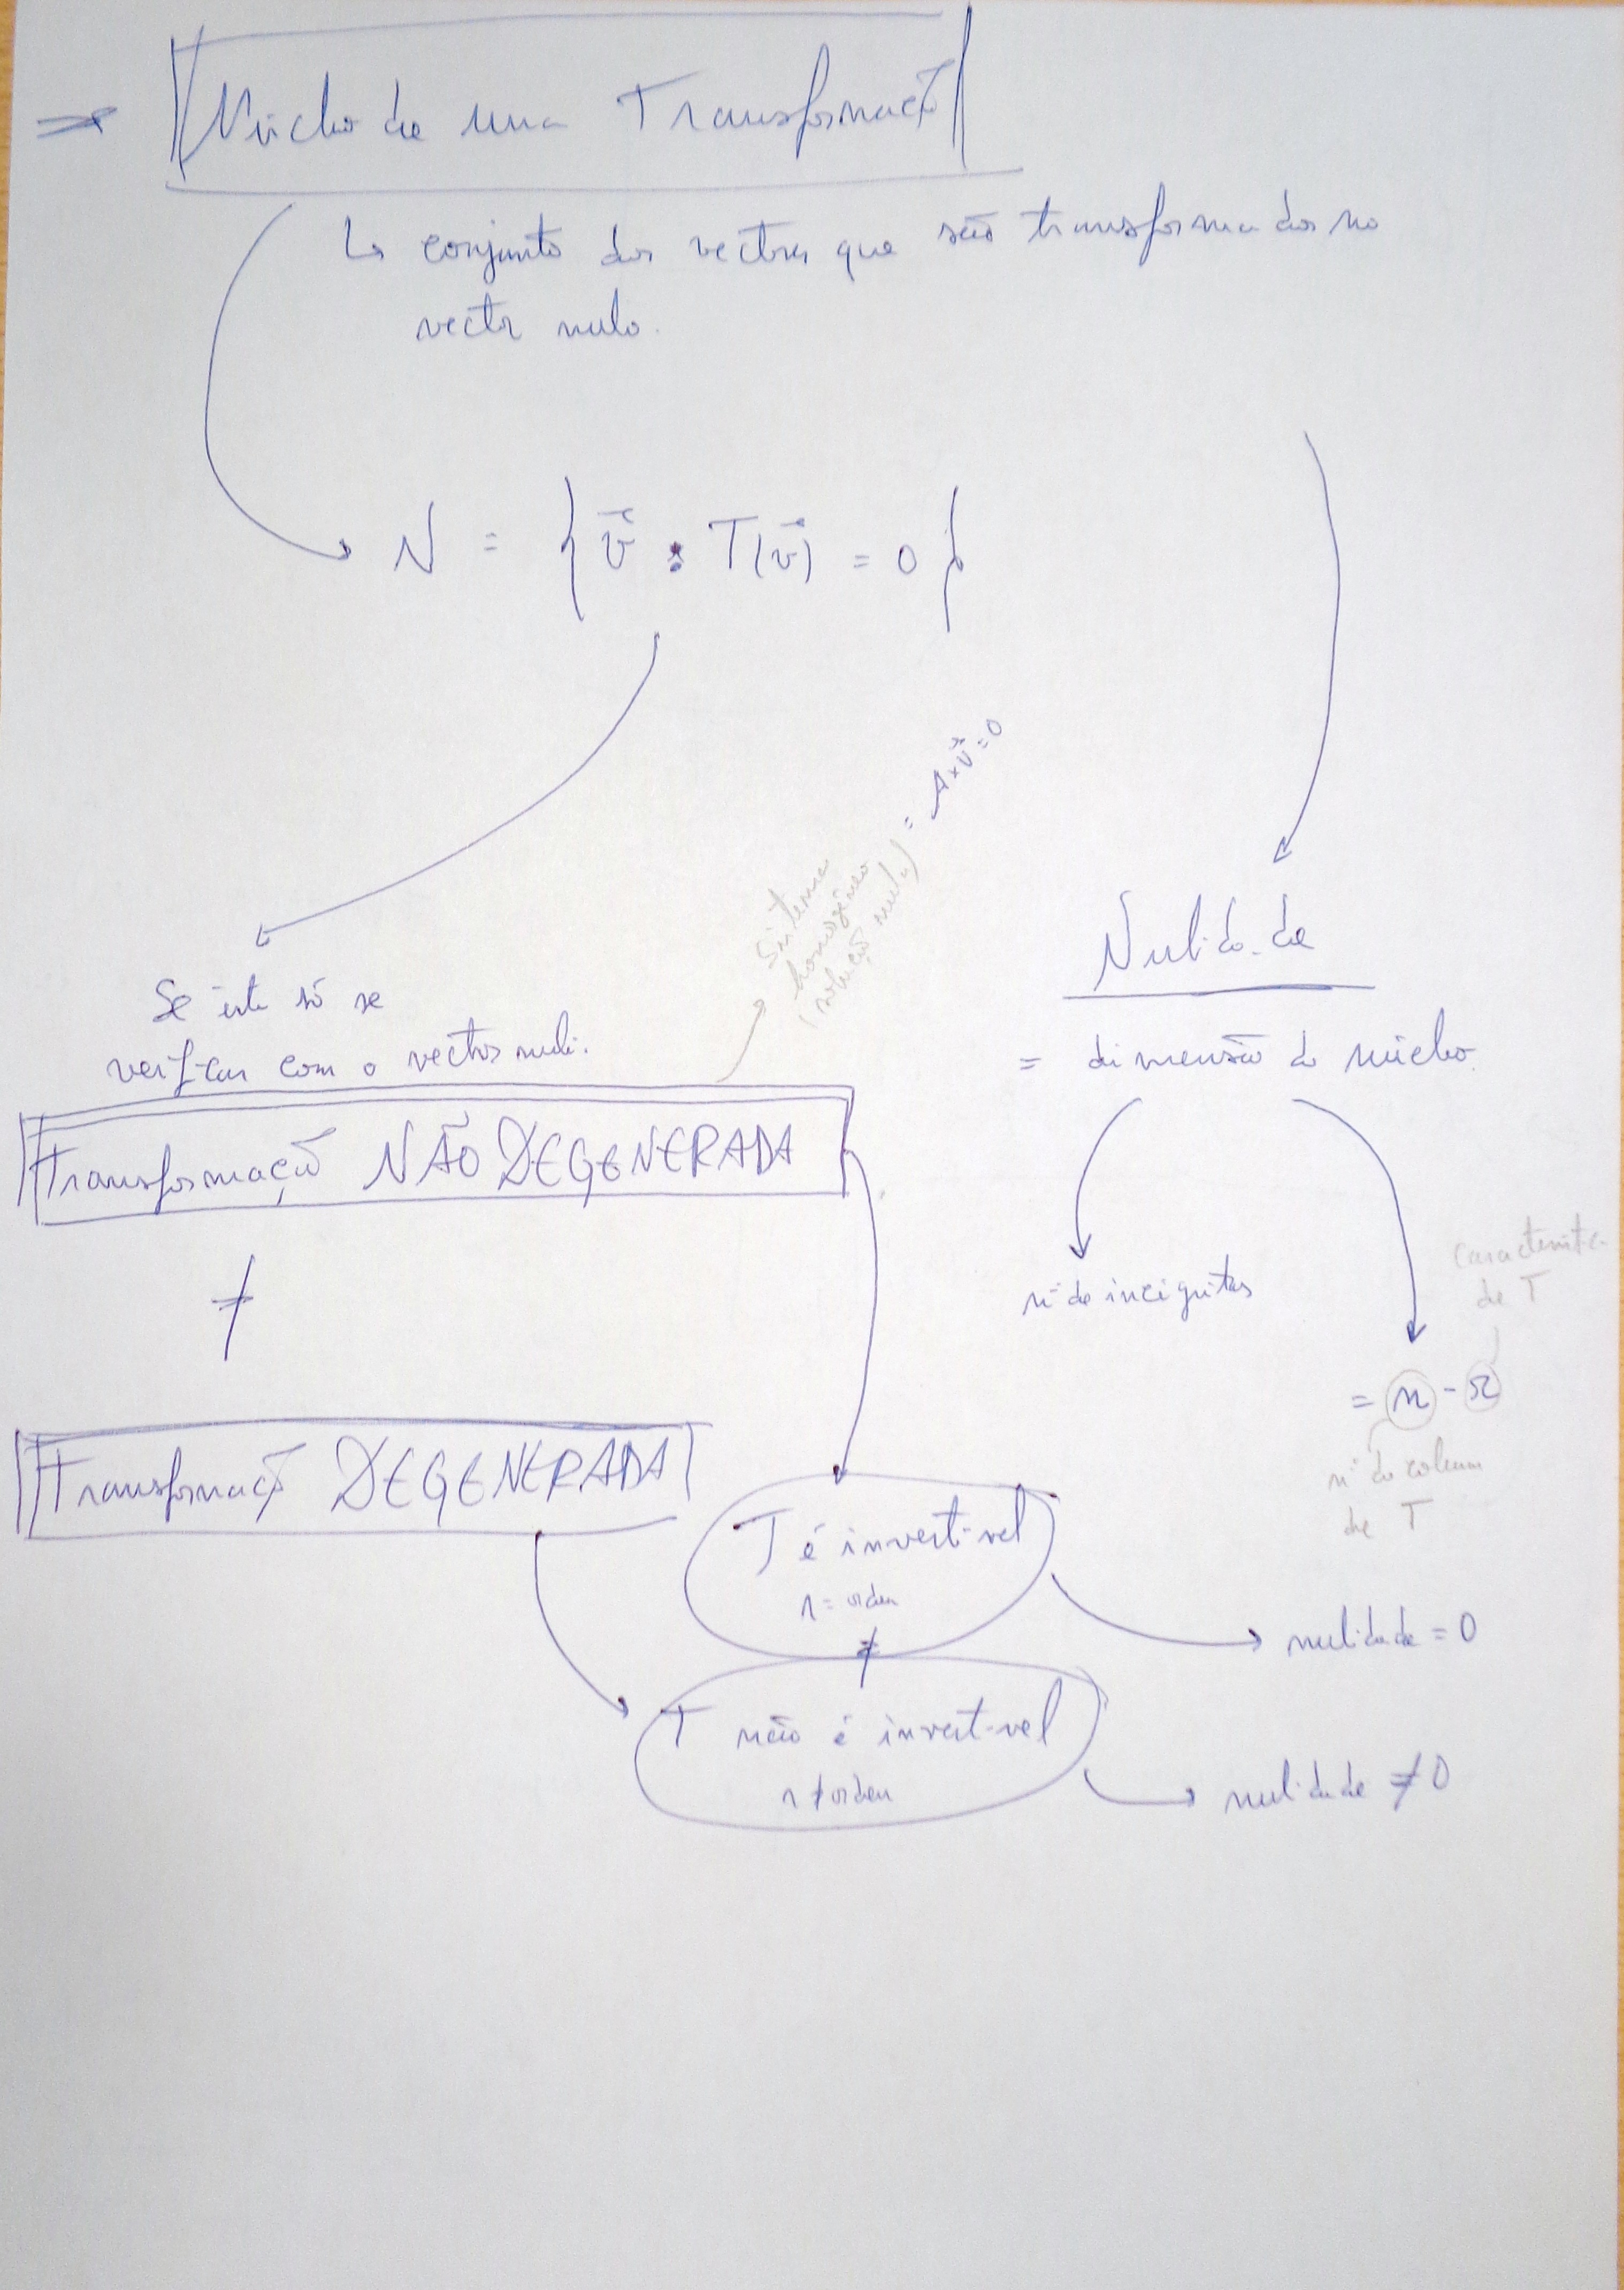 ⇒ Núcleo de uma Transformação
↳ conjunto dos vectores que são transformados no
vector nulo.
N = { v⃗ : T(v⃗) = 0 }
Sistema
homogéneo
(solução nula) = A×v⃗=0
Se este só se
verificar com o vector nulo.
Transformação NÃO DEGENERADA
≠
Transformação DEGENERADA
Nulidade
= dimensão do núcleo.
nº de incógnitas
característica
de T
= n - r
nº de colunas
de T
T é invertível
r = ordem
≠
T não é invertível
r ≠ ordem
nulidade = 0
nulidade ≠ 0